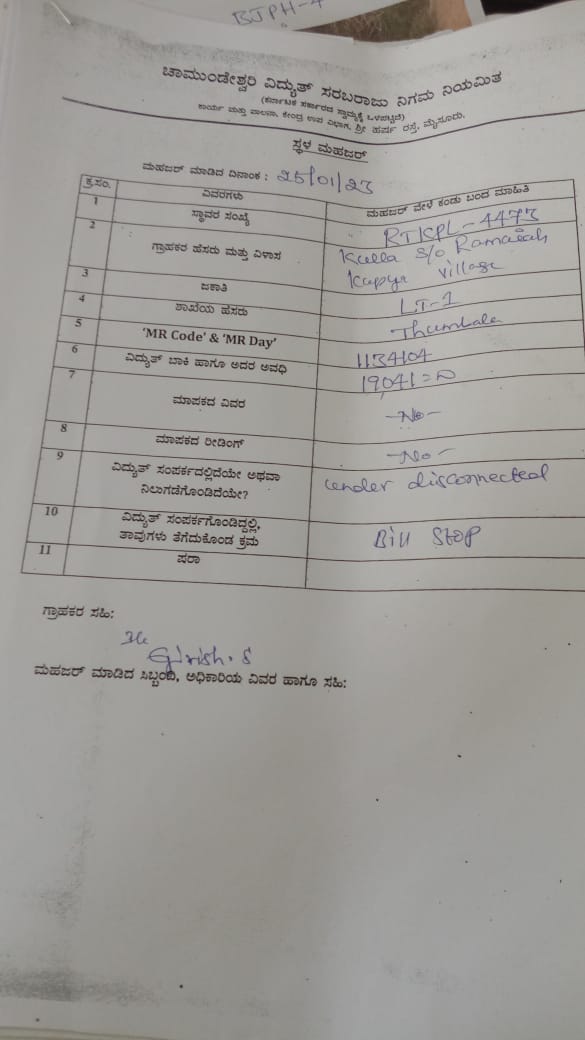 BJPH-4
ಚಾಮುಂಡೇಶ್ವರಿ ವಿದ್ಯುತ್ ಸರಬರಾಜು ನಿಗಮ ನಿಯಮಿತ
(ಕರ್ನಾಟಕ ಸರ್ಕಾರದ ಸ್ವಾಮ್ಯಕ್ಕೆ ಒಳಪಟ್ಟಿದೆ)
ಕಾರ್ಯ ಮತ್ತು ಪಾಲನಾ, ಕೇಂದ್ರ ಉಪ ವಿಭಾಗ, ಶ್ರೀ ಹರ್ಷ ರಸ್ತೆ, ಮೈಸೂರು.
ಸ್ಥಳ ಮಹಜರ್
ಮಹಜರ್ ಮಾಡಿದ ದಿನಾಂಕ : 25/01/23
ಕ್ರ.ಸಂ. ವಿವರಗಳು ಮಹಜರ್ ವೇಳೆ ಕಂಡು ಬಂದ ಮಾಹಿತಿ
1 ಸ್ಥಾವರ ಸಂಖ್ಯೆ RTKPL-4473
2 ಗ್ರಾಹಕರ ಹೆಸರು ಮತ್ತು ವಿಳಾಸ Kulla S/o Ramaiah
Kupya village
3 ಜಕಾತಿ LT-1
4 ಶಾಖೆಯ ಹೆಸರು Thumbala
5 'MR Code' & 'MR Day' 1134104
6 ವಿದ್ಯುತ್ ಬಾಕಿ ಹಾಗೂ ಅದರ ಅವಧಿ 19041=00
7 ಮಾಪಕದ ವಿವರ -No-
8 ಮಾಪಕದ ರೀಡಿಂಗ್ -No-
9 ವಿದ್ಯುತ್ ಸಂಪರ್ಕದಲ್ಲಿದೆಯೇ ಅಥವಾ
ನಿಲುಗಡೆಗೊಂಡಿದೆಯೇ? under disconnected
10 ವಿದ್ಯುತ್ ಸಂಪರ್ಕಗೊಂಡಿದ್ದಲ್ಲಿ,
ತಾವುಗಳು ತೆಗೆದುಕೊಂಡ ಕ್ರಮ Bill Stop
11 ಷರಾ
ಗ್ರಾಹಕರ ಸಹಿ:
Girish.S
ಮಹಜರ್ ಮಾಡಿದ ಸಿಬ್ಬಂದಿ, ಅಧಿಕಾರಿಯ ವಿವರ ಹಾಗೂ ಸಹಿ: